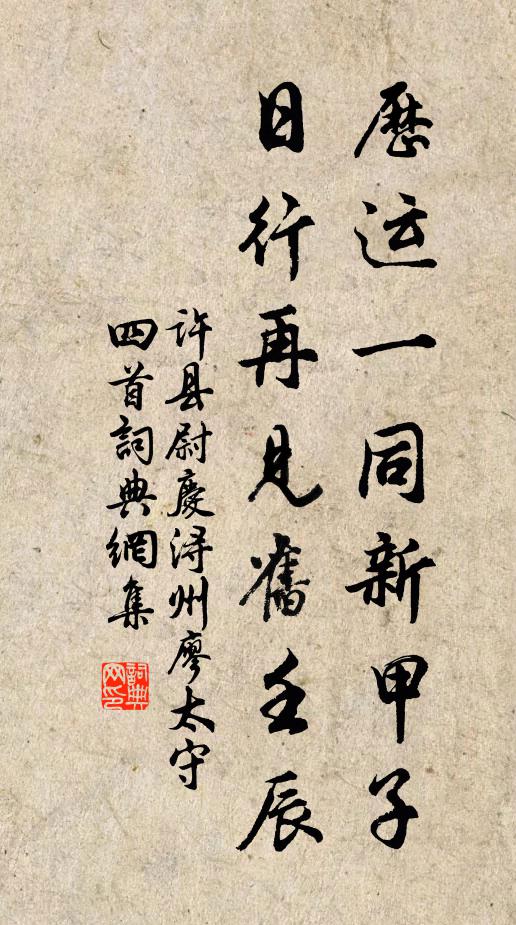 歷运一同新甲子
日行再見舊壬辰
许县尉慶浔州廖太守
四首詞典網集
詞典网印